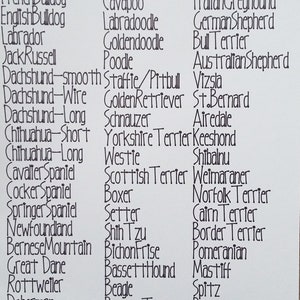 EnglishBulldog
Labrador
JackRussell
Dachshund-smooth
Dachshund-Wire
Dachshund-Long
Chihuahua-Short
Chihuahua-Long
CavalierSpaniel
CockerSpaniel
SpringerSpaniel
Newfoundland
BerneseMountain
Great Dane
Rottweiler
Cavapoo
Labradoodle
Goldendoodle
Poodle
Staffie/Pitbull
GoldenRetriever
Schnauzer
Yorkshire Terrier
Westie
ScottishTerrier
Boxer
Setter
ShihTzu
BichonFrise
BassettHound
Beagle
ItalianGreyhound
GermanShepherd
BullTerrier
AustralianShepherd
Vizsla
St.Bernard
Airedale
Keeshond
ShibaInu
Weimaraner
Norfolk Terrier
Cairn Terrier
Border Terrier
Pomeranian
Mastiff
Spitz